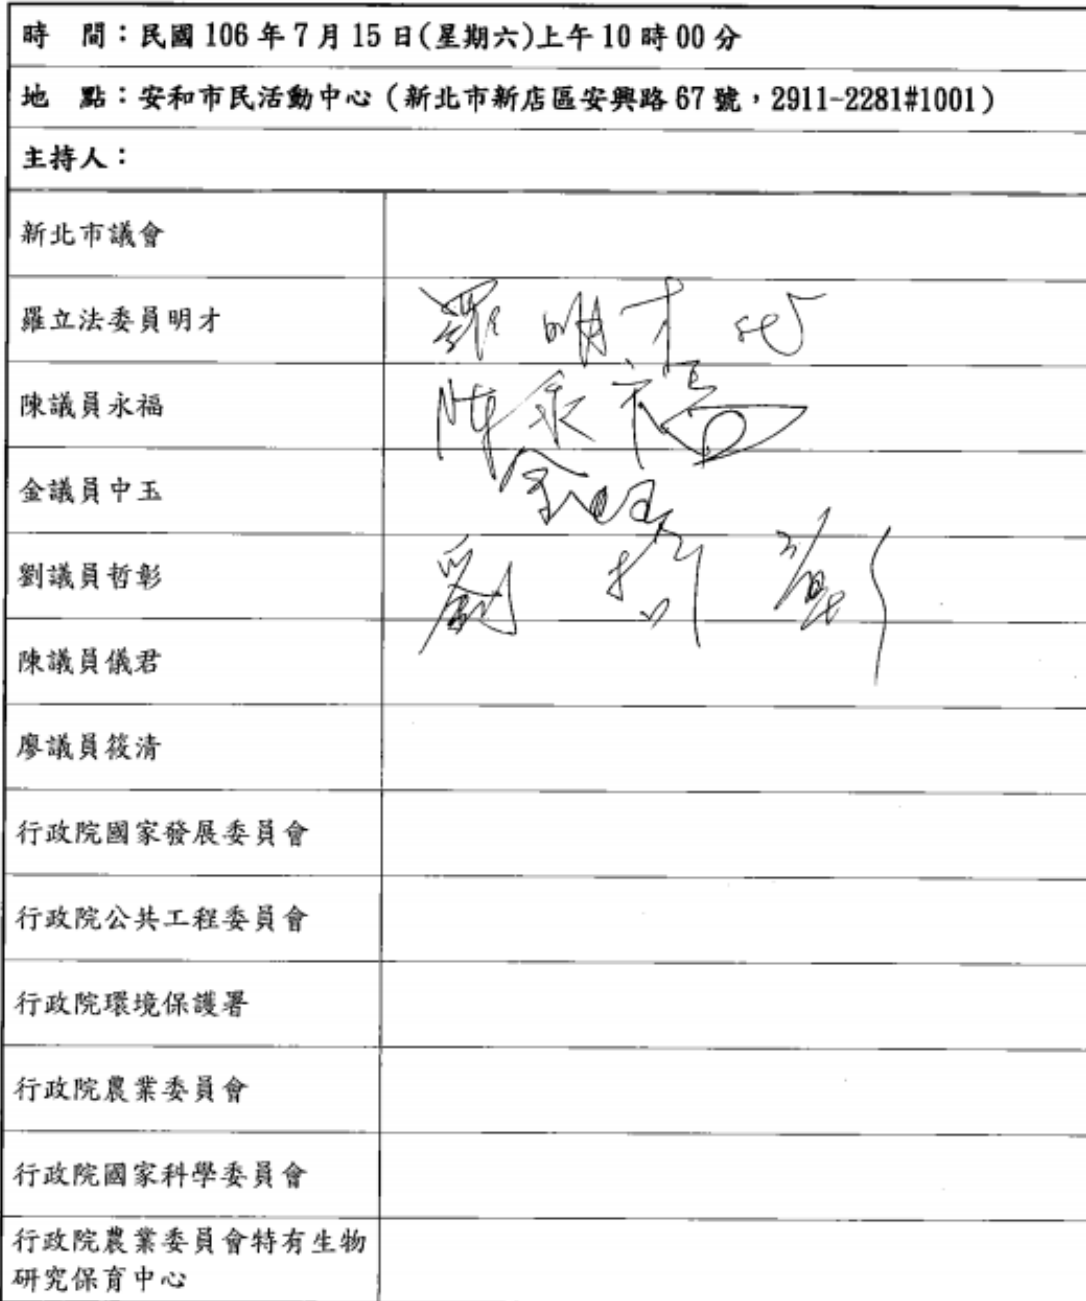 時　間：民國 106 年 7 月 15 日(星期六)上午 10 時 00 分
地　點：安和市民活動中心（新北市新店區安興路 67 號，2911-2281#1001）
主持人：
新北市議會
羅立法委員明才
羅明才
陳議員永福
陳永福
金議員中玉
金中玉
劉議員哲彰
劉哲彰
陳議員儀君
廖議員筱清
行政院國家發展委員會
行政院公共工程委員會
行政院環境保護署
行政院農業委員會
行政院國家科學委員會
行政院農業委員會特有生物
研究保育中心